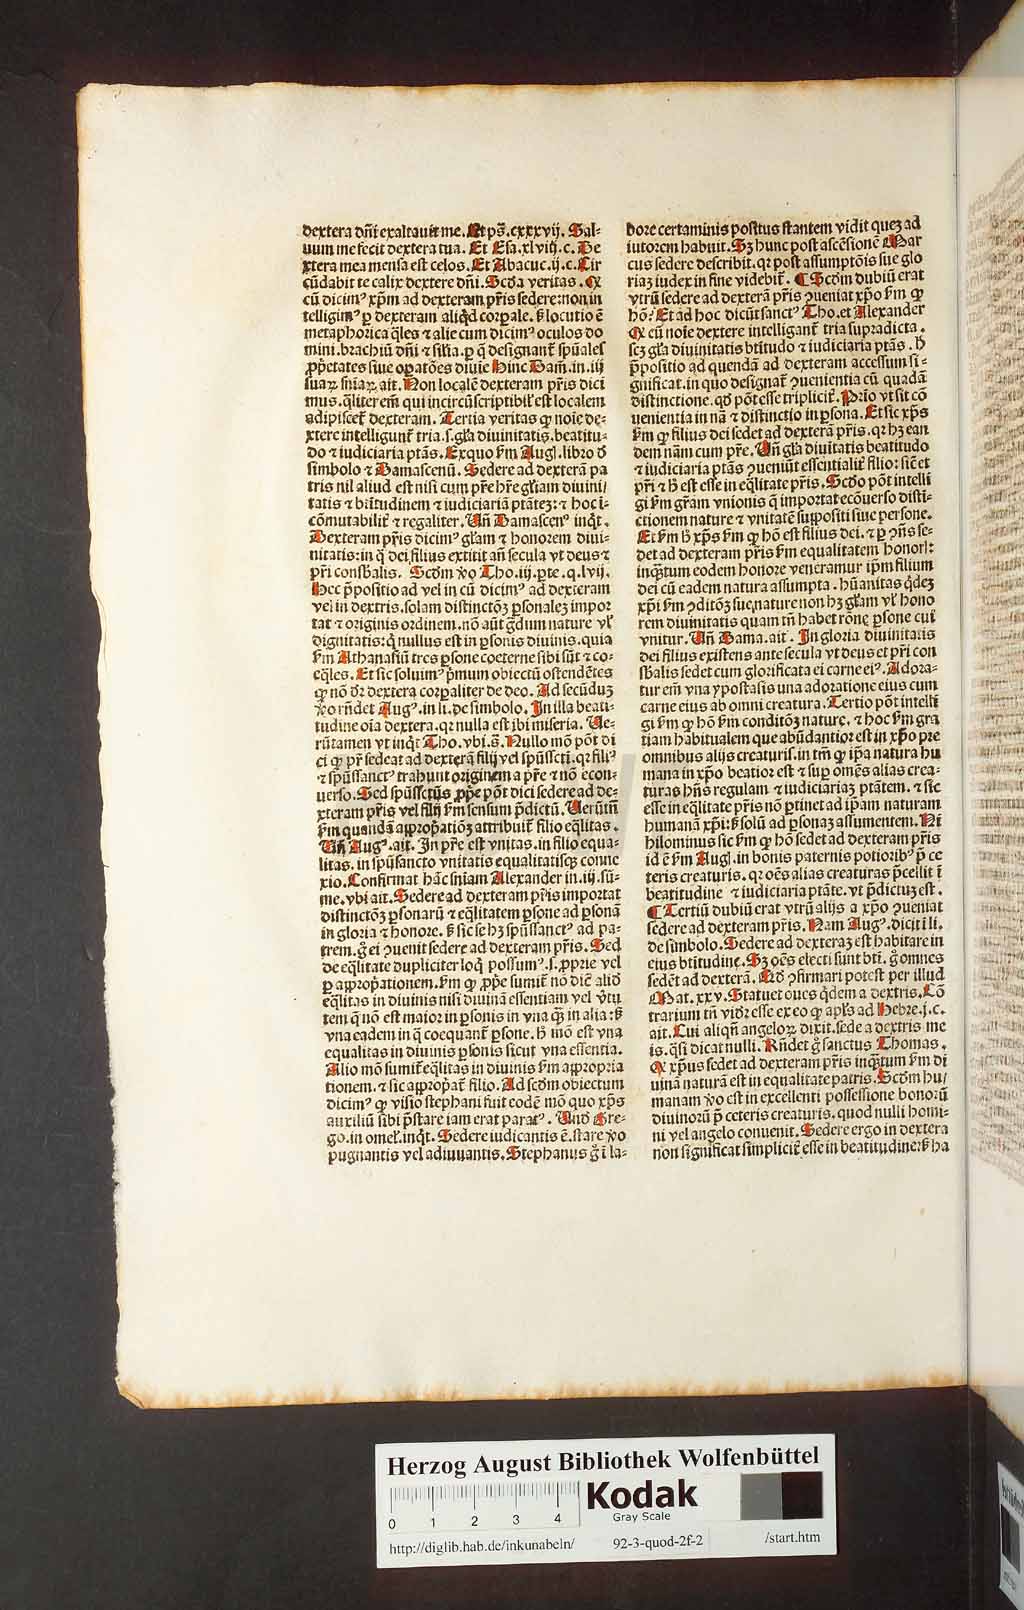 dextera dñi exaltauit me. Et pš. cxxxvij. Sal-
uum me fecit dextera tua. Et Esa. xlviij. c. De
xtera mea mensa est celos. Et Abacuc. ij. c. Cir
cũdabit te calix dextere dñi. Scďa veritas. Q
cũ dicimꝰ xp̃m ad dexteram pr̃is sedere: non in
telligimꝰ p dexteram aliq̇d corp̱ale. sꝫ locutio ẽ
metaphorica q̃les ⁊ alie cum dicimꝰ oculos do
mini. brachiũ dñi ⁊ silia. p q̃ designant̃ spũales
p̱petates siue op̱atões diuie Hinc Dam̃. in. iij
suaꝝ sñiaꝝ. ait. Non localẽ dexteram pr̃is dici
mus. q̃liter em̃ qui incircũscriptibil̃ est localem
adipiscet̃ dexteram. Tertia veritas ꝙ noĩe de-
xtere intelligunt̃ tria. s. gl̃a diuinitatis. beatitu-
do ⁊ iudiciaria ptãs. Exquo sm̃ Augl. libro ď
simbolo ⁊ Damascenũ. Sedere ad dexterã pa
tris nil aliud est nisi cum pr̃e hr̃e gl̃iam diuini/
tatis ⁊ br̃itudinem ⁊ iudiciariã ptãteꝫ: ⁊ hoc ĩ-
cõmutabilit̃ ⁊ regaliter. Uñ Damascenꝰ inq̇t.
Dexteram pr̃is dicimꝰ gl̃am ⁊ honorem diui-
nitatis: in q̃ dei filius extitit añ secula vt deus ⁊
pr̃i consb̃alis. Scďm ꝟo Tho. iij. p̱te. q. lvij.
Hec p̃positio ad vel in cũ dicimꝰ ad dexteram
vel in dextris. solam distinctõꝫ p̱sonaleꝫ impor
tat ⁊ originis ordinem. nõ aũt g̃dum nature vl̃
dignitatis: q̇ nullus est in p̱sonis diuinis. quia
sm̃ Athanasiũ tres p̱sone coeterne sibi sũt ⁊ co-
eq̃les. Et sic soluimꝰ p̃mum obiectũ ostendẽtes
ꝙ nõ ďr dextera corp̱aliter de deo. Ad secũduꝫ
ꝟo rñdet Augꝰ. in li. de simbolo. In illa beati-
tudine oĩa dextera. qꝛ nulla est ibi miseria. Ue-
rũtamen vt inq̇t Tho. vbi. s̃. Nullo mõ põt di
ci ꝙ pr̃ sedeat ad dexterã filij vel spũssc̃ti. qꝛ filiꝰ
⁊ spũssanctꝰ trahunt originem a pr̃e ⁊ nõ econ-
uerso. Sed spũssc̃tũs p̱p̱e põt dici sedere ad de-
xteram pr̃is vel filij sm̃ sensum p̃dictũ. Uerũtñ
sm̃ quendã app̱op̱atiõꝫ attribuit̃ filio eq̃litas.
Uñ Augꝰ. ait. In pr̃e est vnitas. in filio equa-
litas. in spũsancto vnitatis equalitatisqꝫ conne
xio. Confirmat hãc sñiam Alexander in. iij. sũ-
me. vbi ait. Sedere ad dexteram pr̃is importat
distinctõꝫ p̱sonarũ ⁊ eq̃litatem p̱sone ad p̱sonã
in gloria ⁊ honore. sꝫ sic se hꝫ spũssanctꝰ ad pa-
trem. g̃ ei ꝯuenit sedere ad dexteram pr̃is. Sed
de eq̃litate dupliciter loq̇ possumꝰ. s. p̱prie vel
p app̱op̱ationem. sm̃ ꝙ p̱p̱e sumit̃ nõ diẽ aliď
eq̃litas in diuinis nisi diuinã essentiam vel v̇tu
tem q̃ nõ est maior in p̱sonis in vna q̃ꝫ in alia: sꝫ
vna eadem in q̃ coequant̃ p̱sone. h̃ mõ est vna
equalitas in diuinis p̱sonis sicut vna essentia.
Alio mõ sumit̃ eq̃litas in diuinis sm̃ app̱opria
tionem. ⁊ sic app̱op̱at̃ filio. Ad scďm obiectum
dicimꝰ ꝙ visio stephani fuit eodẽ mõ quo xp̃s
auxiliũ sibi p̃stare iam erat paratꝰ. Unď Gre-
go. in omel̃. inq̇t. Sedere iudicantis ẽ. stare ꝟo
pugnantis vel adiuuantis. Stephanus g̃ ĩ la-
bore certaminis positus stantem vidit queꝫ ad
iutorem habuit. Sꝫ hunc post ascẽsionẽ Mar
cus sedere describit. qꝛ post assumptõis sue glo
riaꝫ iudex in fine videbit̃. ¶ Scďm dubiũ erat
vtrũ sedere ad dexterã pr̃is ꝯueniat xp̃o sm̃ ꝙ
hõ? Et ad hoc dicũt sanctꝰ Tho. et Alexander
Q cũ noĩe dextere intelligant̃ tria supradicta.
scꝫ gl̃a diuinitatis btĩtudo ⁊ iudiciaria ptãs. h̃
p̃positio ad quendã ad dexteram accessum si-
gnificat. in quo designat̃ ꝯuenientia cũ quadã
distinctione. qď põt esse triplicit̃. Prĩo vt sit cõ
uenientia in nã ⁊ distinctio in p̱sona. Et sic xp̃s
sm̃ ꝙ filius dei sedet ad dexterã pr̃is. qꝛ hꝫ ean
dem nãm cum pr̃e. Uñ gl̃a diuĩtatis beatitudo
⁊ iudiciaria ptãs ꝯueniũt essentialit̃ filio: sic̃ et
pr̃i ⁊ h̃ est esse in eq̃litate pr̃is. Scďo põt intelli
gi sm̃ gr̃am vnionis q̃ importat ecõuerso disti-
ctionem nature ⁊ vnitatẽ suppositi siue persone.
Et sm̃ h̃ xp̃s sm̃ ꝙ hõ est filius dei. ⁊ p ꝯñs se-
det ad dexteram pr̃is sm̃ equalitatem honoris:
inq̃tum eodem honore veneramur ip̃m filium
dei cũ eadem natura assumpta. hũanitas q̇deꝫ
xp̃i sm̃ ꝯditõꝫ sue nature non hꝫ gl̃am vl̃ hono
rem diuinitatis quam tñ habet rõne p̱sone cui
vnitur. Uñ Dama. ait. In gloria diuinitatis
dei filius existens ante secula vt deus et pr̃i con
sb̃alis sedet cum glorificata ei carne eiꝰ. Adora-
tur em̃ vna ypostasis una adoratione eius cum
carne eius ab omni creatura. Tertio põt intelli
gi sm̃ ꝙ hõ sm̃ conditõꝫ nature. ⁊ hoc sm̃ gra
tiam habitualem que abũdantior est in xp̃o pre
omnibus alijs creaturis. in tm̃ ꝙ ip̃a natura hu
mana in xp̃o beatior est ⁊ sup omẽs alias crea-
turas hñs regulam ⁊ iudiciariaꝫ ptãtem. ⁊ sic
esse in eq̃litate pr̃is nõ p̱tinet ad ip̃am naturam
humanã xp̃i: sꝫ solũ ad p̱sonaꝫ assumentem. Ni
hilominus sic sm̃ ꝙ hõ sedet ad dexteram pr̃is
id ẽ sm̃ Augl. in bonis paternis potioribꝰ p̃ ce
teris creaturis. qꝛ oẽs alias creaturas p̃cellit ĩ
beatitudine ⁊ iudiciaria ptãte. vt p̃dictuꝫ est.
¶ Tertiũ dubiũ erat vtrũ alijs a xp̃o ꝯueniat
sedere ad dexteram pr̃is. Nam Augꝰ. dicit ĩ li.
de simbolo. Sedere ad dexteraꝫ est habitare in
eius btĩtudine. Sꝫ oẽs electi sunt btĩ. g̃ omnes
sedẽt ad dexterã. Qď ꝯfirmari potest per illud
Mat. xxv. Statuet oues q̇dem a dextris. Cõ
trarium tñ vidr̃ esse ex eo ꝙ apl̃s ad Hebre. j. c.
ait. Cui aliqñ angeloꝝ dixit. sede a dextris me
is. q̃si dicat nulli. Rñdet g̃ sanctus Thomas.
Q xp̃us sedet ad dexteram pr̃is inq̃tum sm̃ di
uinã naturã est in equalitate patris. Scďm hu/
manam ꝟo est in excellenti possessione bonorũ
diuinorũ p̃ ceteris creaturis. quod nulli homi-
ni vel angelo conuenit. Sedere ergo in dextera
non significat simplicit̃ esse in beatitudine: sꝫ ha
Herzog August Bibliothek Wolfenbüttel
0 1 2 3 4
Kodak
Gray Scale
http://diglib.hab.de/inkunabeln/ 92-3-quod-2f-2 /start.htm